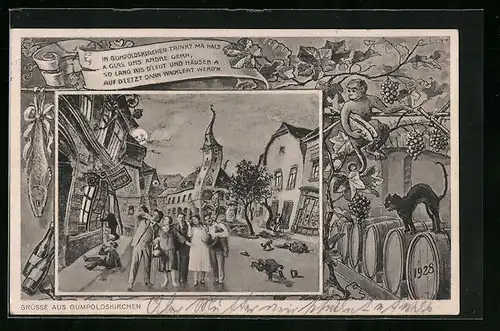 IN GUMPOLDSKIRCHEN TRINKT MA HALT
A GLAS UMS ANDRE GERN,
SO LANG BIS D'LEUT UND HÄUSER A
AUF D'LETZT DANN WACKLERT WERD'N
1928
GRÜSSE AUS GUMPOLDSKIRCHEN